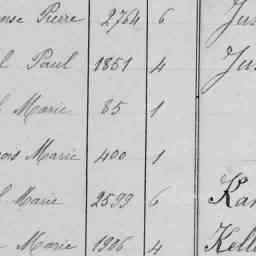 Pierre 2764 6 Jus
Paul 1851 4 Jus
Marie 85 1
Marie 400 1
Marie 2599 6 Kar
Marie 1906 4 Kell